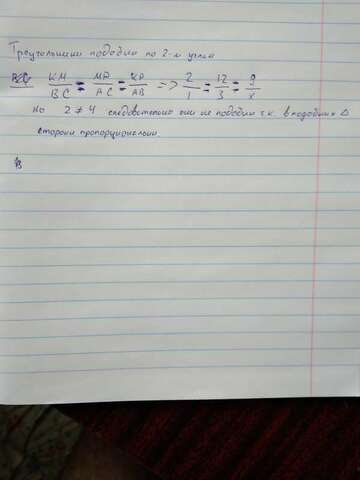 Треугольники подобны по 2-м углам
KM/BC = MP/AC = KP/AB => 2/1 = 12/3 = 9/x
Но 2 ≠ 4 следовательно они не подобны т.к. в подобных △
стороны пропорциональны.
В